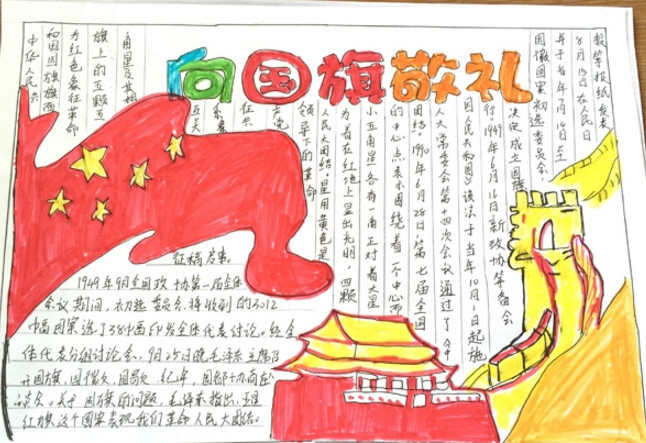 向国旗敬礼
中华人民共
和国国旗旗面
为红色象征革命
旗上的五颗五
角星及其相
互关
系象
征共
产党
领导下的革命
人民大团结，星用黄色是
为着在红地上显出光明，四颗
小五角星各有一角正对着大星
的中心点表示围绕着一个中心而
团结，1990年6月28日第七届全国
人大常委会第十四次会议通过了《中
国人民共和国》该法于当年10月1日起施
行。1949年6月16日新政协筹备会
决定成立国旗
国徽图案初选委员会，
年于当年7月14日至
8月15日在人民日
报等报纸发表
征稿启事。
1949年9月全国政协第一届全体
会议期间，初选委员会将收到的3012
中高图案选了38中高印发全体代表讨论。经全
体代表分组讨论会、9月25日晚毛泽东主席召
开国旗、国徽、国歌、纪年、国都协商座
谈会。关于国旗的问题，毛泽东指出，五星
红旗这个图案表现我们革命人民大团结。